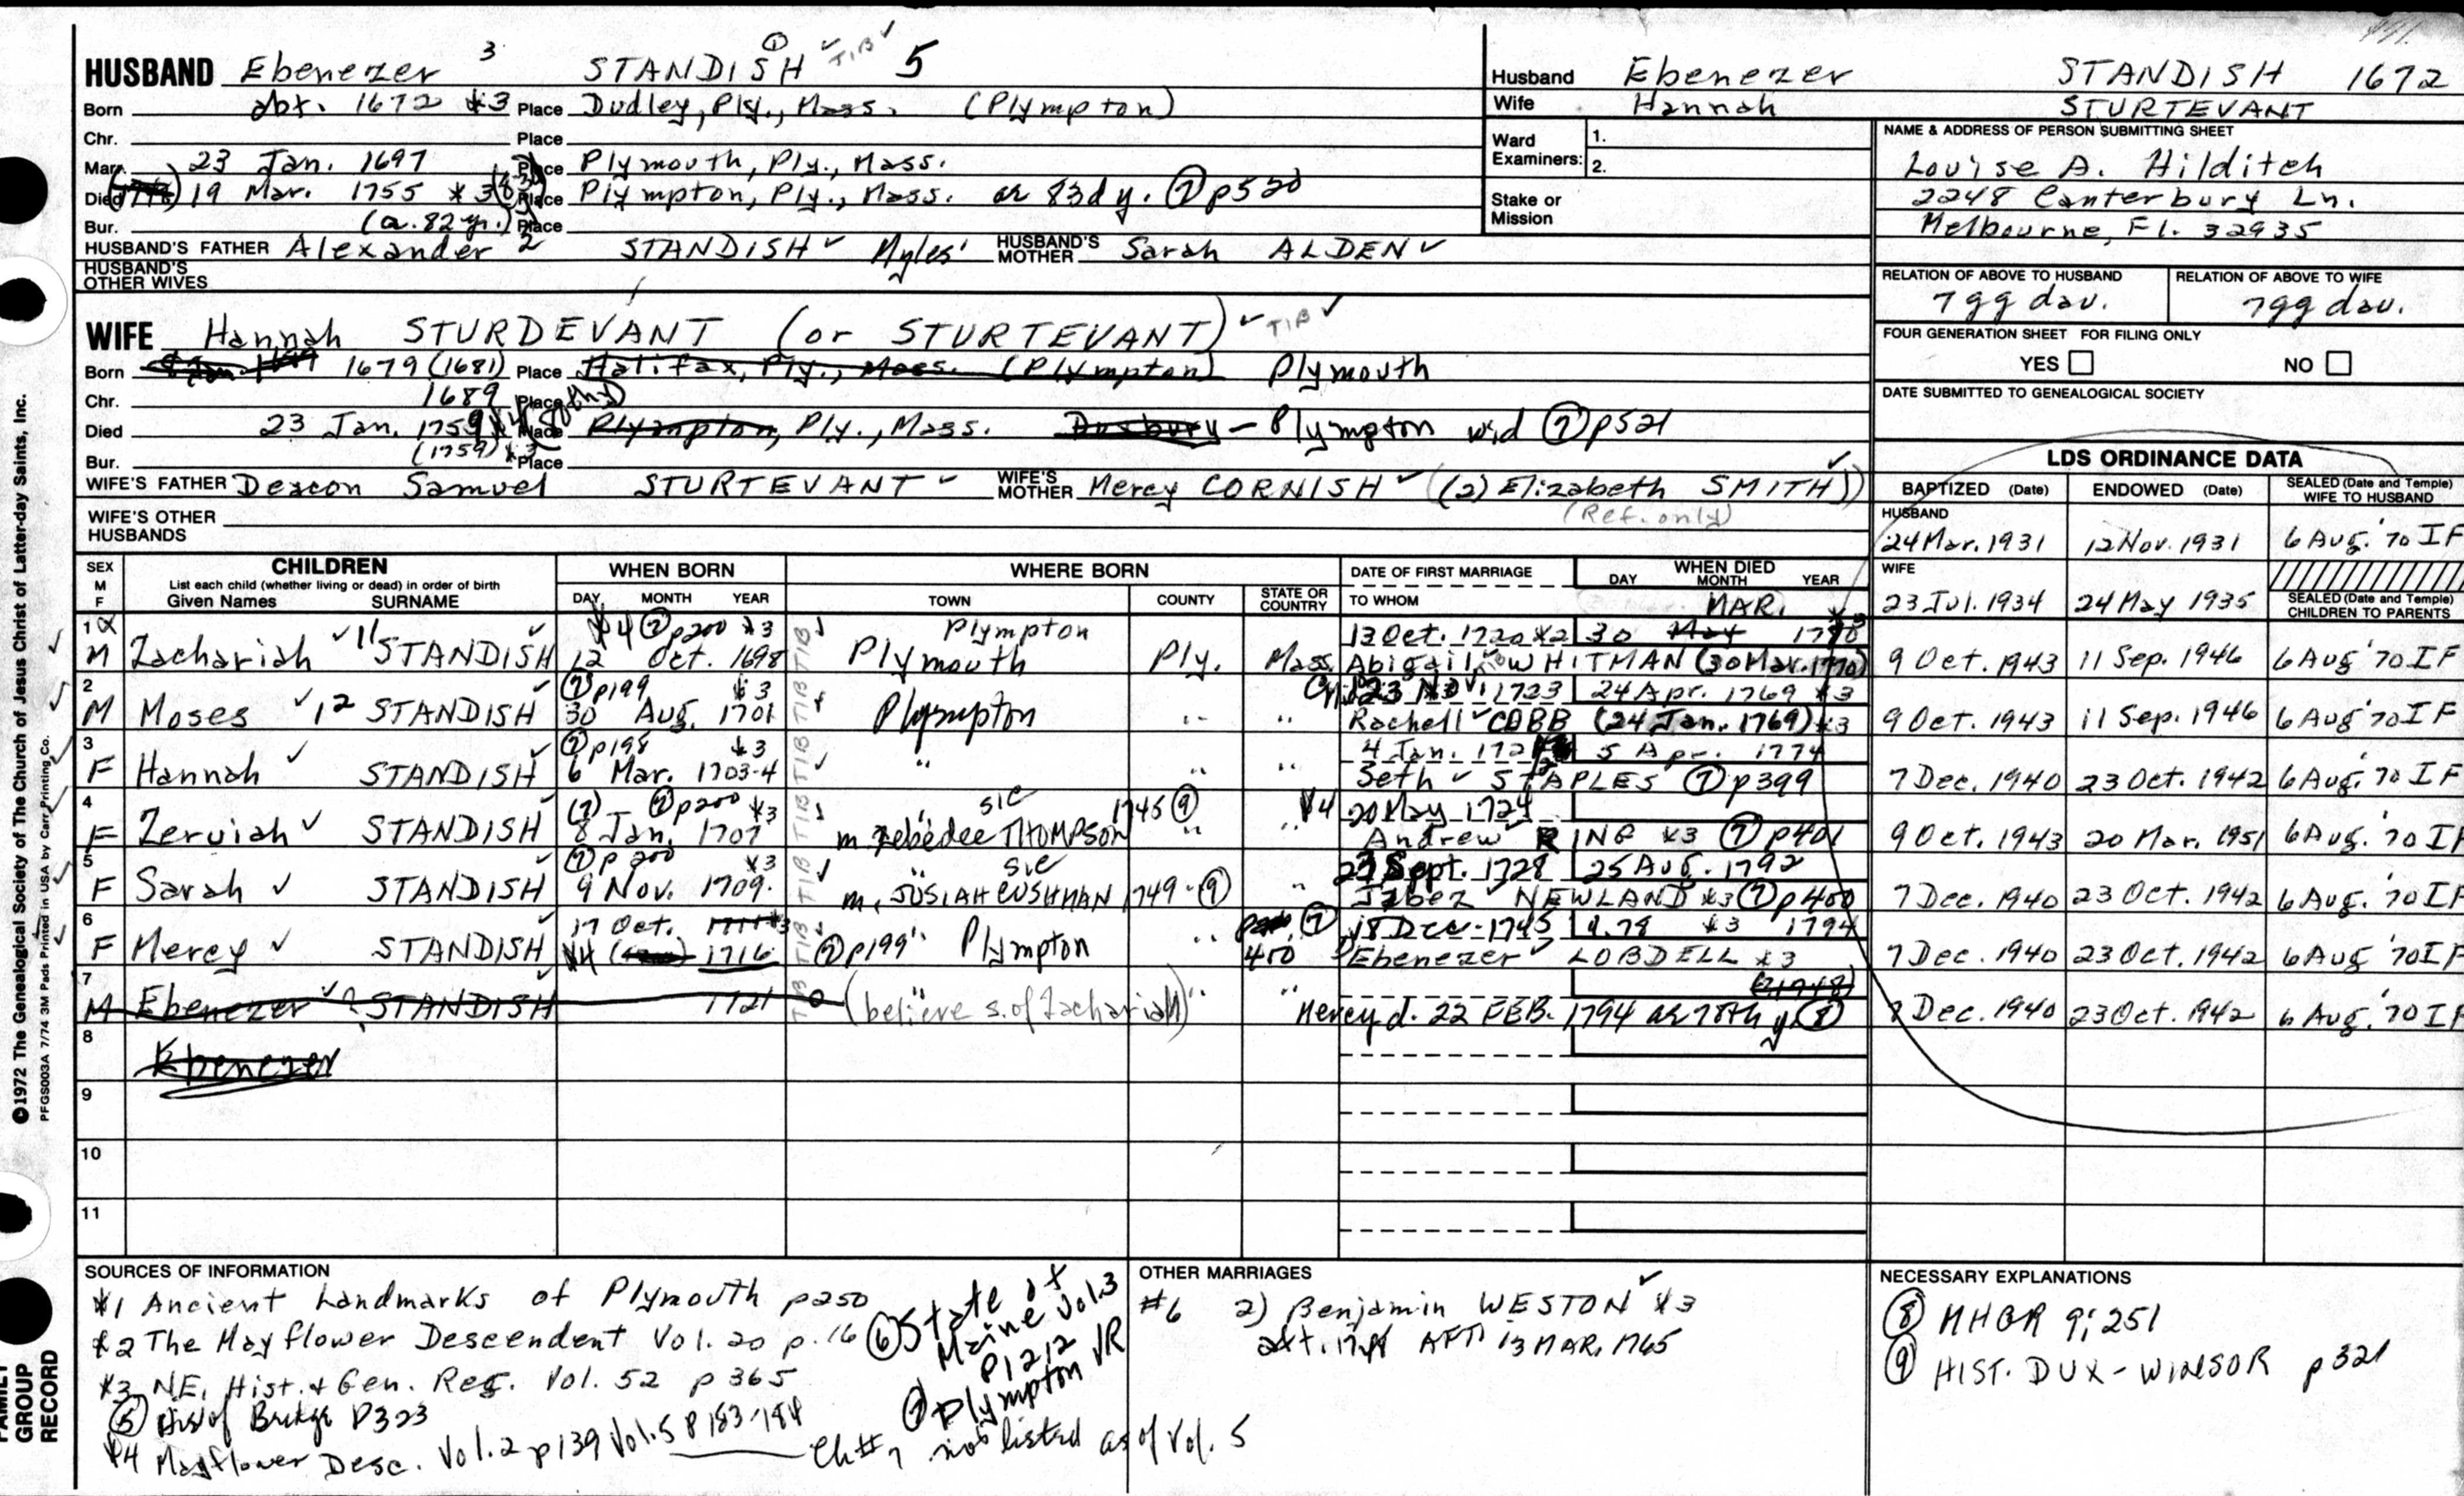 HUSBAND Ebenezer 3 STANDISH ① ✓ TIB ✓ 5
Born abt. 1672 *3 Place Dudley, Ply., Mass. (Plympton)
Chr. Place
Marr. 23 Jan. 1697 Place Plymouth, Ply., Mass.
Died 19 Mar. 1755 *3 Place Plympton, Ply., Mass. ae 83d y. ⑦ p520
Bur. (a. 82 yr.) Place
HUSBAND'S FATHER Alexander 2 STANDISH ✓ Myles' HUSBAND'S MOTHER Sarah ALDEN ✓
HUSBAND'S OTHER WIVES
WIFE Hannah STURDEVANT (or STURTEVANT) ✓ TIB ✓
Born 1679 (1681) Place Halifax, Ply., Mass. (Plympton) Plymouth
Chr. 1689 Place
Died 23 Jan. 1759 Place Plympton, Ply., Mass. Duxbury - Plympton wid ⑦ p521
Bur. (1759) *3 Place
WIFE'S FATHER Deacon Samuel STURTEVANT ✓ WIFE'S MOTHER Mercy CORNISH ✓ ((2) Elizabeth SMITH)) ✓
(Ref. only)
WIFE'S OTHER HUSBANDS
Husband Ebenezer STANDISH 1672
Wife Hannah STURTEVANT
Ward Examiners: 1.
2.
Stake or Mission
NAME & ADDRESS OF PERSON SUBMITTING SHEET
Louise A. Hilditch
2248 Canterbury Ln.
Melbourne, Fl. 32935
RELATION OF ABOVE TO HUSBAND RELATION OF ABOVE TO WIFE
7gg dau. 7gg dau.
FOUR GENERATION SHEET FOR FILING ONLY
YES NO
DATE SUBMITTED TO GENEALOGICAL SOCIETY
LDS ORDINANCE DATA
BAPTIZED (Date) ENDOWED (Date) SEALED (Date and Temple) WIFE TO HUSBAND
HUSBAND
24 Mar. 1931 12 Nov. 1931 6 Aug. '70 IF
WIFE
23 Jul. 1934 24 May 1935
SEALED (Date and Temple) CHILDREN TO PARENTS
SEX M F
CHILDREN
List each child (whether living or dead) in order of birth
Given Names SURNAME
WHEN BORN
DAY MONTH YEAR
WHERE BORN
TOWN COUNTY STATE OR COUNTRY
DATE OF FIRST MARRIAGE
TO WHOM
WHEN DIED
DAY MONTH YEAR
MAR.
1 *4 ⑦ p200 *3 Plympton 13 Oct. 1720 *2 30 May 1770 *3
M Zachariah ✓ 11 STANDISH 12 Oct. 1698 TIB Plymouth Ply. Mass Abigail WHITMAN (30 Mar. 1770) 9 Oct. 1943 11 Sep. 1946 6 Aug '70 IF
2 ⑦ p199 *3 23 Nov. 1723 24 Apr. 1769 *3
M Moses ✓ 12 STANDISH 30 Aug. 1701 TIB Plympton " " Rachell ✓ COBB (24 Jan. 1769) *3 9 Oct. 1943 11 Sep. 1946 6 Aug '70 IF
3 ⑦ p198 *3 4 Jan. 5 Apr. 1774
F Hannah ✓ STANDISH 6 Mar. 1703-4 TIB " " " Seth ✓ STAPLES ⑦ p399 7 Dec. 1940 23 Oct. 1942 6 Aug. '70 IF
4 (7) ⑦ p200 *3 sic 1745 ⑨ *4 20 May 1724
F Zeruiah ✓ STANDISH 8 Jan. 1707 TIB m. Zebedee THOMPSON " " Andrew RING *3 ⑦ p401 9 Oct. 1943 20 Mar. 1951 6 Aug. '70 IF
5 ⑦ p 200 *3 sic 27 Sept. 1728 25 Aug. 1792
F Sarah ✓ STANDISH 9 Nov. 1709. TIB m. JOSIAH CUSHMAN 1749 - ⑨ " Jabez NEWLAND *3 ⑦ p400 7 Dec. 1940 23 Oct. 1942 6 Aug. '70 IF
6 17 Oct. 1711 *3 ⑦ 18 Dec. 1745 a. 78 *3 1794
F Mercy ✓ STANDISH *4 1716 TIB ⑦ p199 " Plympton " 400 Ebenezer ✓ LOBDELL *3 7 Dec. 1940 23 Oct. 1942 6 Aug '70 IF
7 (1748)
M Ebenezer ✓ ? STANDISH 1721 TIB (believe s. of Zachariah) " " Mercy d. 22 FEB. 1794 ae 78th y. ⑧ 7 Dec. 1940 23 Oct. 1942 6 Aug. '70 IF
8 Ebenezer
9
10
11
SOURCES OF INFORMATION
*1 Ancient Landmarks of Plymouth p250
*2 The Mayflower Descendent Vol. 20 p. 16
*3 NE. Hist. & Gen. Reg. Vol. 52 p 365
⑤ Hist of Bridge P323
*4 Mayflower Desc. Vol. 2 p139 Vol. 5 p 183-184 Ch #7 not listed as of Vol. 5
⑥ State of Maine Vol. 3 p1212
⑦ Plympton VR
OTHER MARRIAGES
#6 2) Benjamin WESTON ✓ *3
AFT 13 MAR. 1765
NECESSARY EXPLANATIONS
⑧ MHGR 9; 251
⑨ HIST. DUX - WINSOR p 321
©1972 The Genealogical Society of The Church of Jesus Christ of Latter-day Saints, Inc.
PFGS003A 7/74 3M Pads Printed in USA by Carr Printing Co.
FAMILY GROUP RECORD